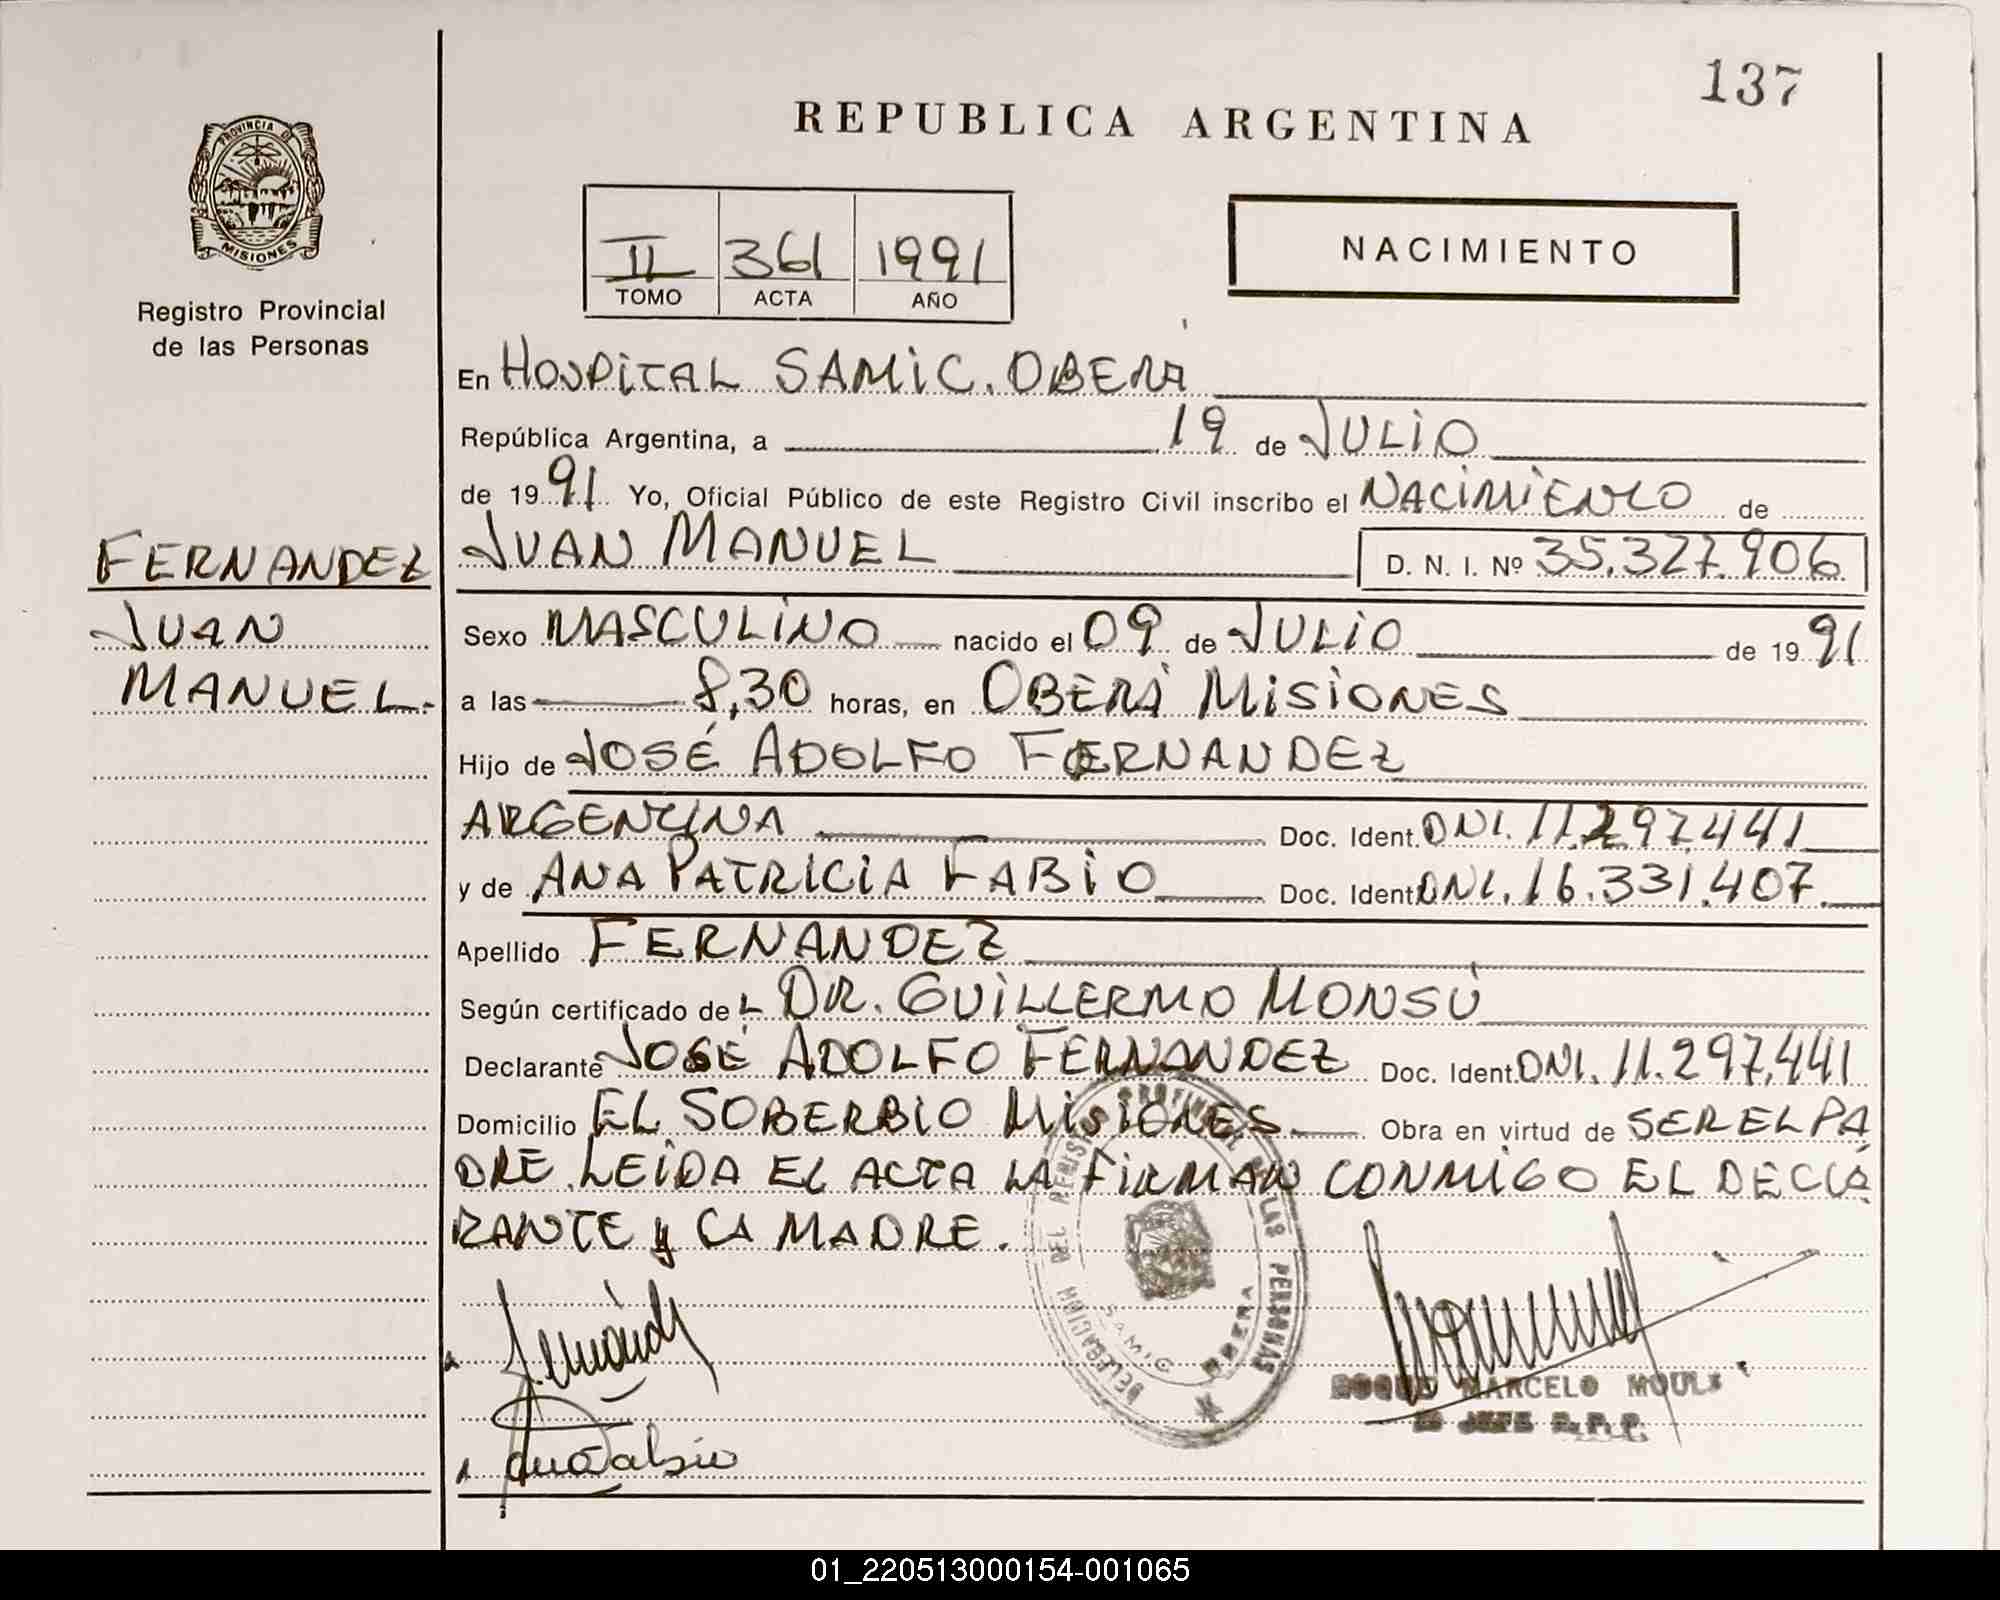 137
REPUBLICA ARGENTINA
PROVINCIA DE
MISIONES
Registro Provincial
de las Personas
II 361 1991
TOMO ACTA AÑO
NACIMIENTO
FERNANDEZ
JUAN
MANUEL.-
En HOSPITAL SAMIC. OBERA
República Argentina, a 19 de JULIO
de 1991 Yo, Oficial Público de este Registro Civil inscribo el NACIMIENTO de
JUAN MANUEL D. N. I. Nº 35.327.906
Sexo MASCULINO nacido el 09 de JULIO de 1991
a las 8,30 horas, en OBERÁ MISIONES
Hijo de JOSÉ ADOLFO FERNANDEZ
ARGENTINA Doc. Ident. DNI. 11.297.441
y de ANA PATRICIA FABIO Doc. Ident. DNI. 16.331.407
Apellido FERNANDEZ
Según certificado de L DR. GUILLERMO MONSÚ
Declarante JOSÉ ADOLFO FERNANDEZ Doc. Ident. DNI. 11.297.441
Domicilio EL SOBERBIO MISIONES Obra en virtud de SER EL PA
DRE. LEIDA EL ACTA LA FIRMAN CONMIGO EL DECLA
RANTE y LA MADRE.
DELEGACION DEL REGISTRO PROVINCIAL DE LAS PERSONAS
SAMIC
OBERA
MARCELO
JEFE
01_220513000154-001065